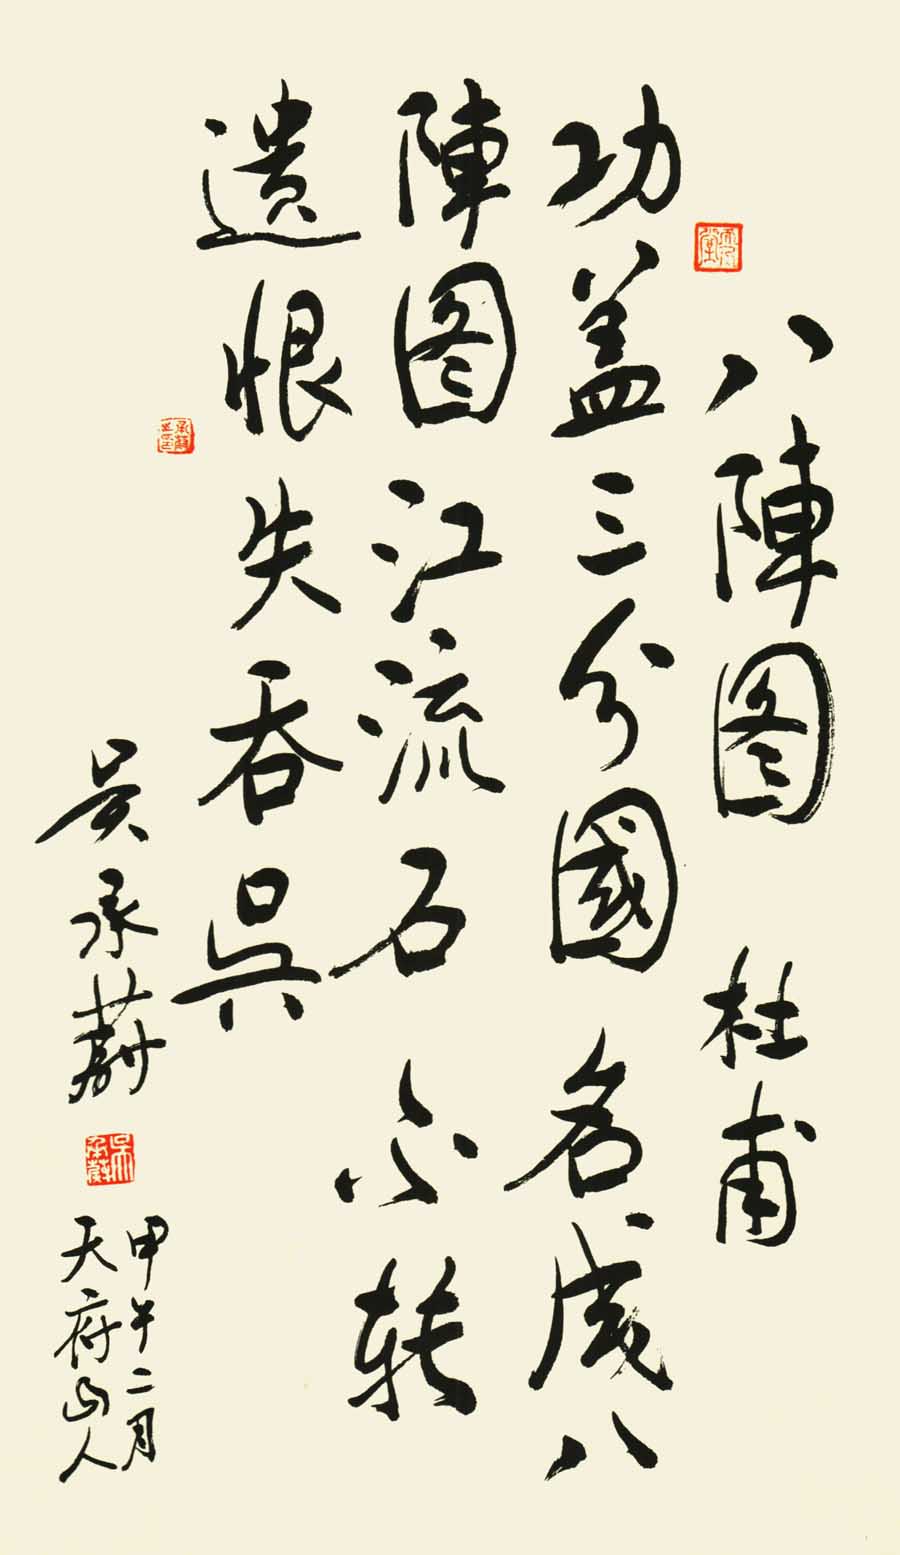 八陣图 杜甫
功盖三分國名成八
陣图江流石不转
遗恨失吞吴
甲午二月
天府山人
吴承蔚